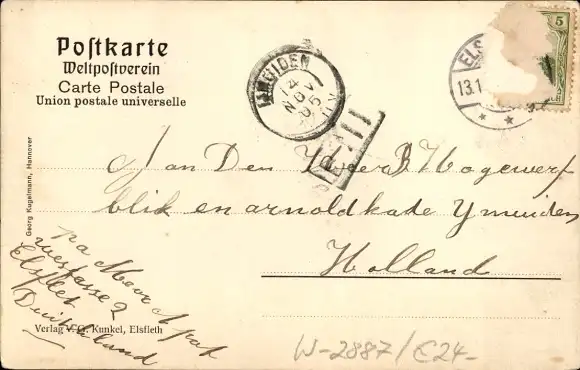 Postkarte
Weltpostverein
Carte Postale
Union postale universelle
IJMUIDEN
14
NOV
05
ELS
13.1
5
Georg Kugelmann, Hannover
Aan Den Heer B Hogewerf
blik en arnoldkade Ymuiden
Holland
pa
Elsfleth
Duitschland
Verlag V. G. Kunkel, Elsfleth
W-2887/E24-